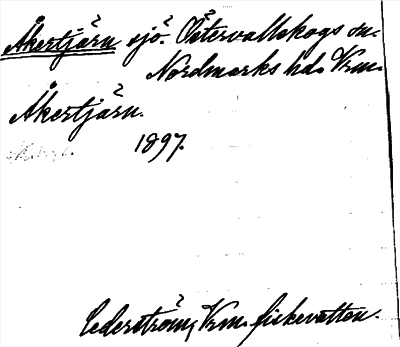 Åkertjärn sjö. Östervallskogs sn.
Nordmarks hd. Vrm.
Åkertjärn.
1897.
Cederström, Vrm. fiskevatten.